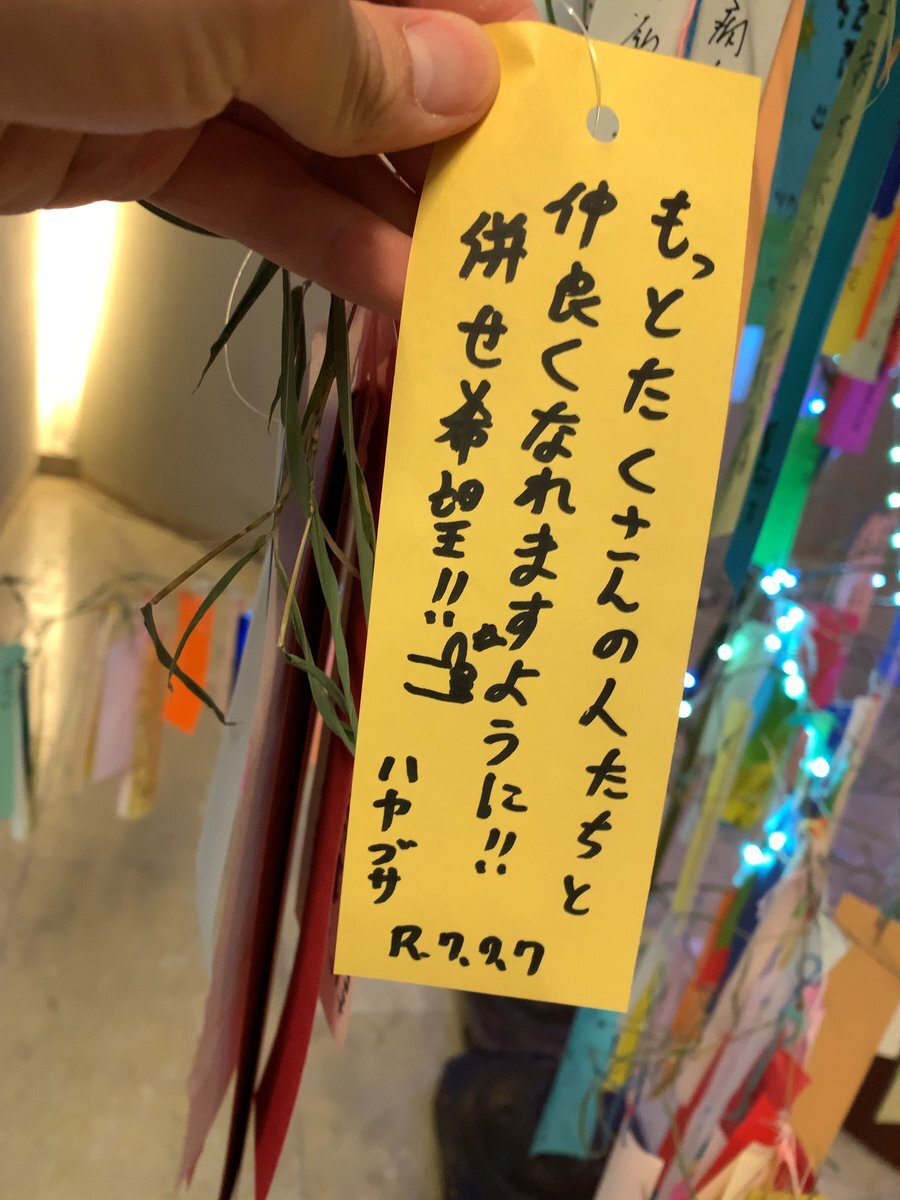 もっとたくさんの人たちと
仲良くなれますように!!
併せ希望!!
ハヤブサ
R.7.9.7